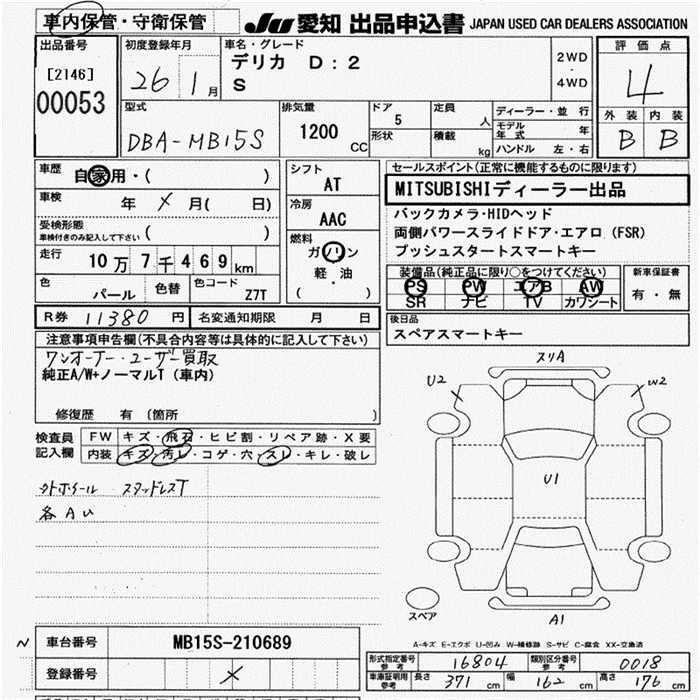 車内保管・守衛保管
JU 愛知 出品申込書 JAPAN USED CAR DEALERS ASSOCIATION
出品番号
[2146]
00053
初度登録年月
26 1月
車名・グレード
デリカ D:2
S
2WD
・
4WD
評価点
4
外装 内装
B B
型式
DBA-MB15S
排気量
1200
CC
ドア
5
形状
定員
人
積載
kg
ディーラー・並行
モデル年式 年
ハンドル 左・右
車歴
自家用・( )
車検
年 メ 月( 日)
受検形態
車検付きのみ記入して下さい ( )
走行
10万7千469km
色
パール
色替
色コード
Z7T
シフト
AT
冷房
AAC
燃料
ガソリン
軽・油
( )
セールスポイント(正常に機能するものに限ります)
MITSUBISHIディーラー出品
バックカメラ・HIDヘッド
両側パワースライドドア・エアロ(FSR)
プッシュスタートスマートキー
装備品(純正品に限り○をつけてください)
PS PW エアB AW
SR ナビ TV カワシート
新車保証書
有・無
R券 11380 円
名変通知期限 月 日
後日品
スペアスマートキー
注意事項申告欄(不具合内容等は具体的に記入して下さい)
ワンオーナー・ユーザー買取
純正A/W+ノーマルT(車内)
修復歴 有(箇所 )
検査員
記入欄
FW キズ・飛石・ヒビ割・リペア跡・X要
内装 キズ・汚レ・コゲ・穴・スレ・キレ・破レ
外ホイール スタッドレスT
各AU
スリA
U2
W2
U1
A1
スペア
A-キズ E-エクボ U-凹み W-補修跡 S-サビ C-腐食 XX-交換済
N
車台番号
MB15S-210689
登録番号
メ
形式指定番号
参考
16804
類別区分番号
参考
0018
車庫証明用
参考
長さ 371 cm
幅 162 cm
高さ 176 cm